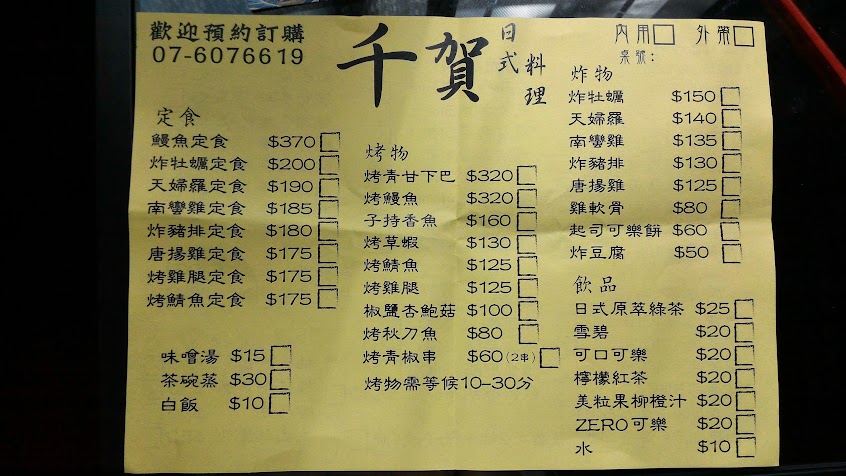 歡迎預約訂購
07-6076619
千賀
日式料理
內用□ 外帶□
桌號：
定食
鰻魚定食 $370□
炸牡蠣定食 $200□
天婦羅定食 $190□
南蠻雞定食 $185□
炸豬排定食 $180□
唐揚雞定食 $175□
烤雞腿定食 $175□
烤鯖魚定食 $175□
味噌湯 $15□
茶碗蒸 $30□
白飯 $10□
烤物
烤青甘下巴 $320□
烤鰻魚 $320□
子持香魚 $160□
烤草蝦 $130□
烤鯖魚 $125□
烤雞腿 $125□
椒鹽杏鮑菇 $100□
烤秋刀魚 $80□
烤青椒串 $60(2串)□
烤物需等候10-30分
炸物
炸牡蠣 $150□
天婦羅 $140□
南蠻雞 $135□
炸豬排 $130□
唐揚雞 $125□
雞軟骨 $80□
起司可樂餅 $60□
炸豆腐 $50□
飲品
日式原萃綠茶 $25□
雪碧 $20□
可口可樂 $20□
檸檬紅茶 $20□
美粒果柳橙汁 $20□
ZERO可樂 $20□
水 $10□